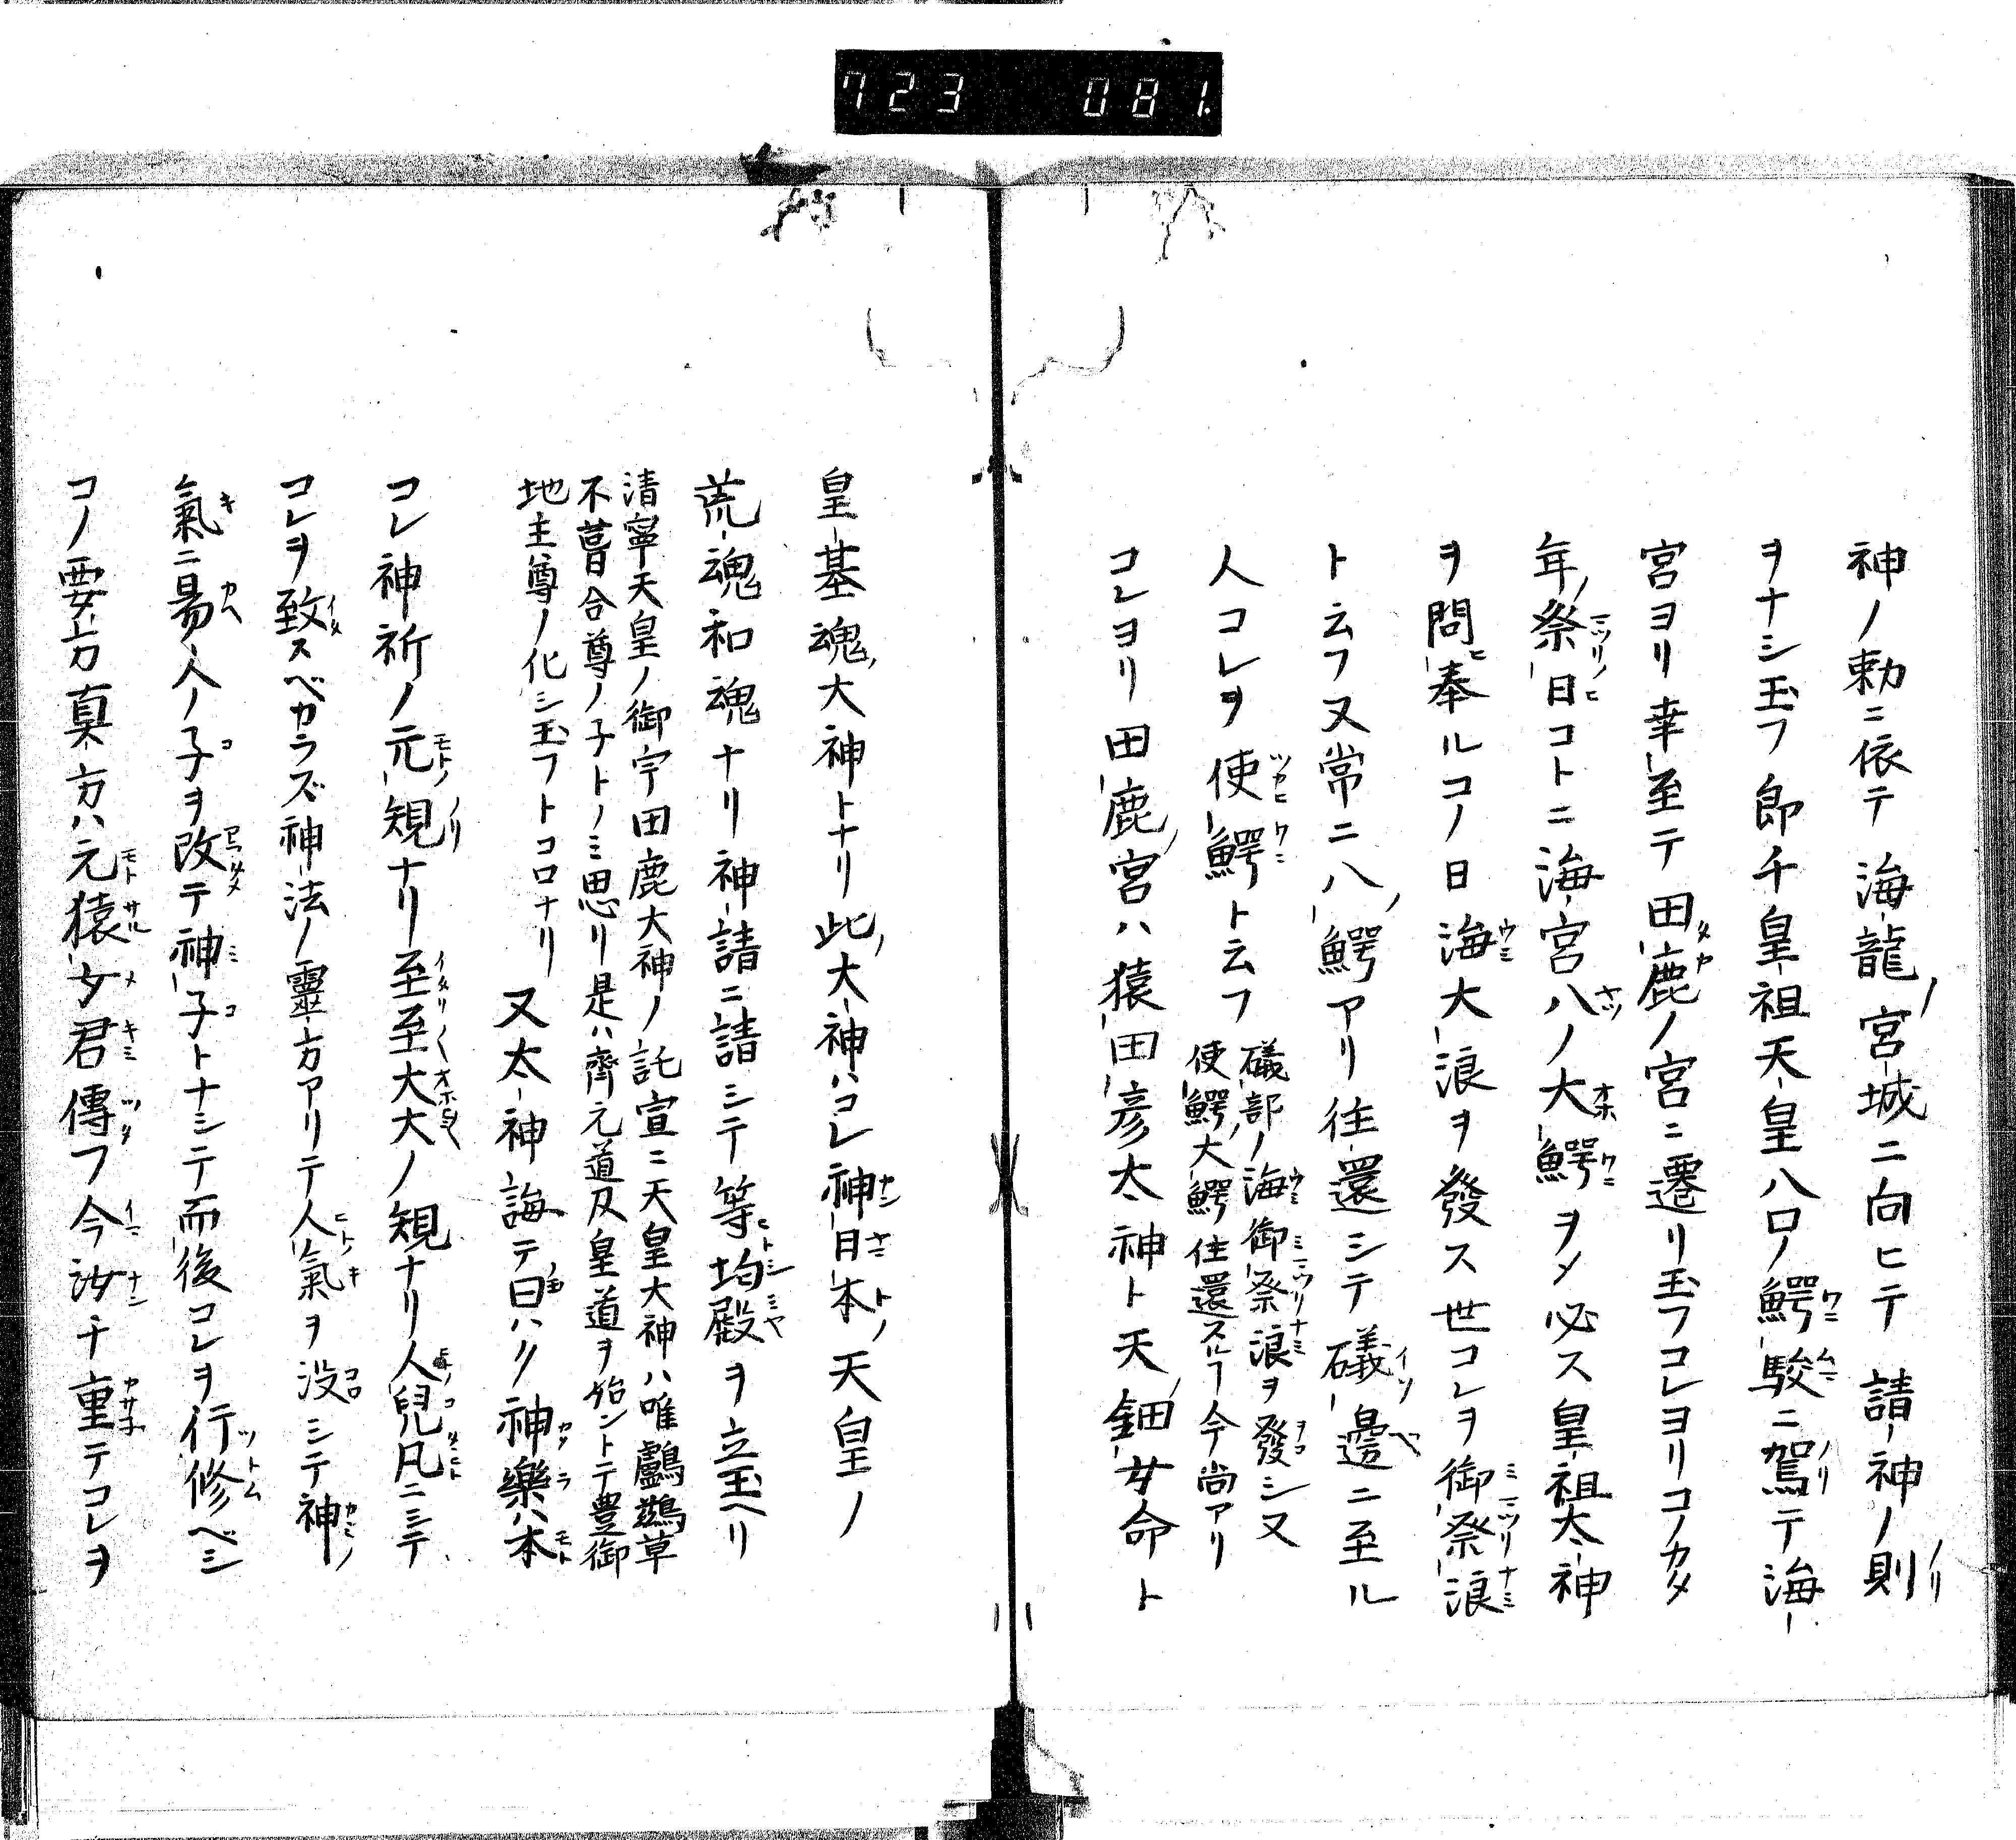 723 081
神ノ勅ニ依テ海龍宮城ニ向ヒテ請神ノ則
ヲナシ玉フ即千皇祖天皇八口ノ鰐駿ニ駕テ海
宮ヨリ幸至テ田鹿ノ宮ニ遷リ玉フコレヨリコノカタ
年祭日コトニ海宮八ノ大鰐ヲメ必ス皇祖太神
ヲ問奉ルコノ日海大浪ヲ發ス世コレヲ御祭浪
ト云フ又常ニ八鰐アリ往還シテ礒邊ニ至ル
人コレヲ使鰐ト云フ
礒部ノ海御祭浪ヲ發シ又
使鰐大鰐往還スルヿ今尚アリ
コレヨリ田鹿宮ハ猿田彦太神ト天鈿女命ト
皇基魂大神トナリ此大神ハコレ神日本天皇ノ
荒魂和魂ナリ神請ニ請シテ等均殿ヲ立玉ヘリ
清寧天皇ノ御宇田鹿大神ノ託宣ニ天皇大神ハ唯鸕鷀草
不葺合尊ノ子トノミ思リ是ハ齊元道及皇道ヲ始ントテ豊御
地主尊ノ化シ玉フトコロナリ
又太神誨テ曰ハク神樂ハ本
コレ神祈ノ元規ナリ至至大大ノ規ナリ人兒凡ニシテ
コレヲ致スベカラズ神法ノ靈方アリテ人氣ヲ没シテ神
氣ニ易人ノ子ヲ改テ神子トナシテ而後コレヲ行修ベシ
コノ要方真方ハ元猿女君傳フ今汝千重テコレヲ